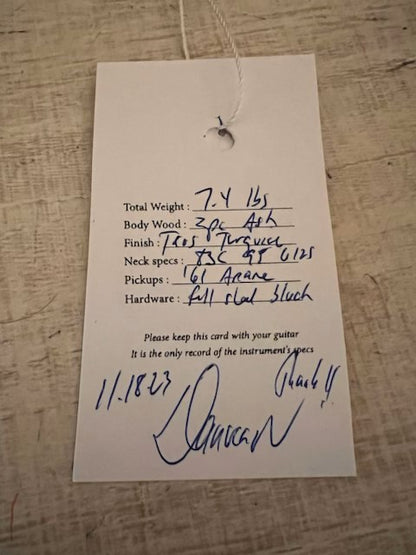 Total Weight : 7.4 lbs
Body Wood : 2pc Ash
Finish : Trans Turquoise
Neck specs : .83C 9.5" 6125
Pickups : '61 Arcane
Hardware : full steel block
Please keep this card with your guitar
It is the only record of the instrument's specs
11.18.23 Thank!!